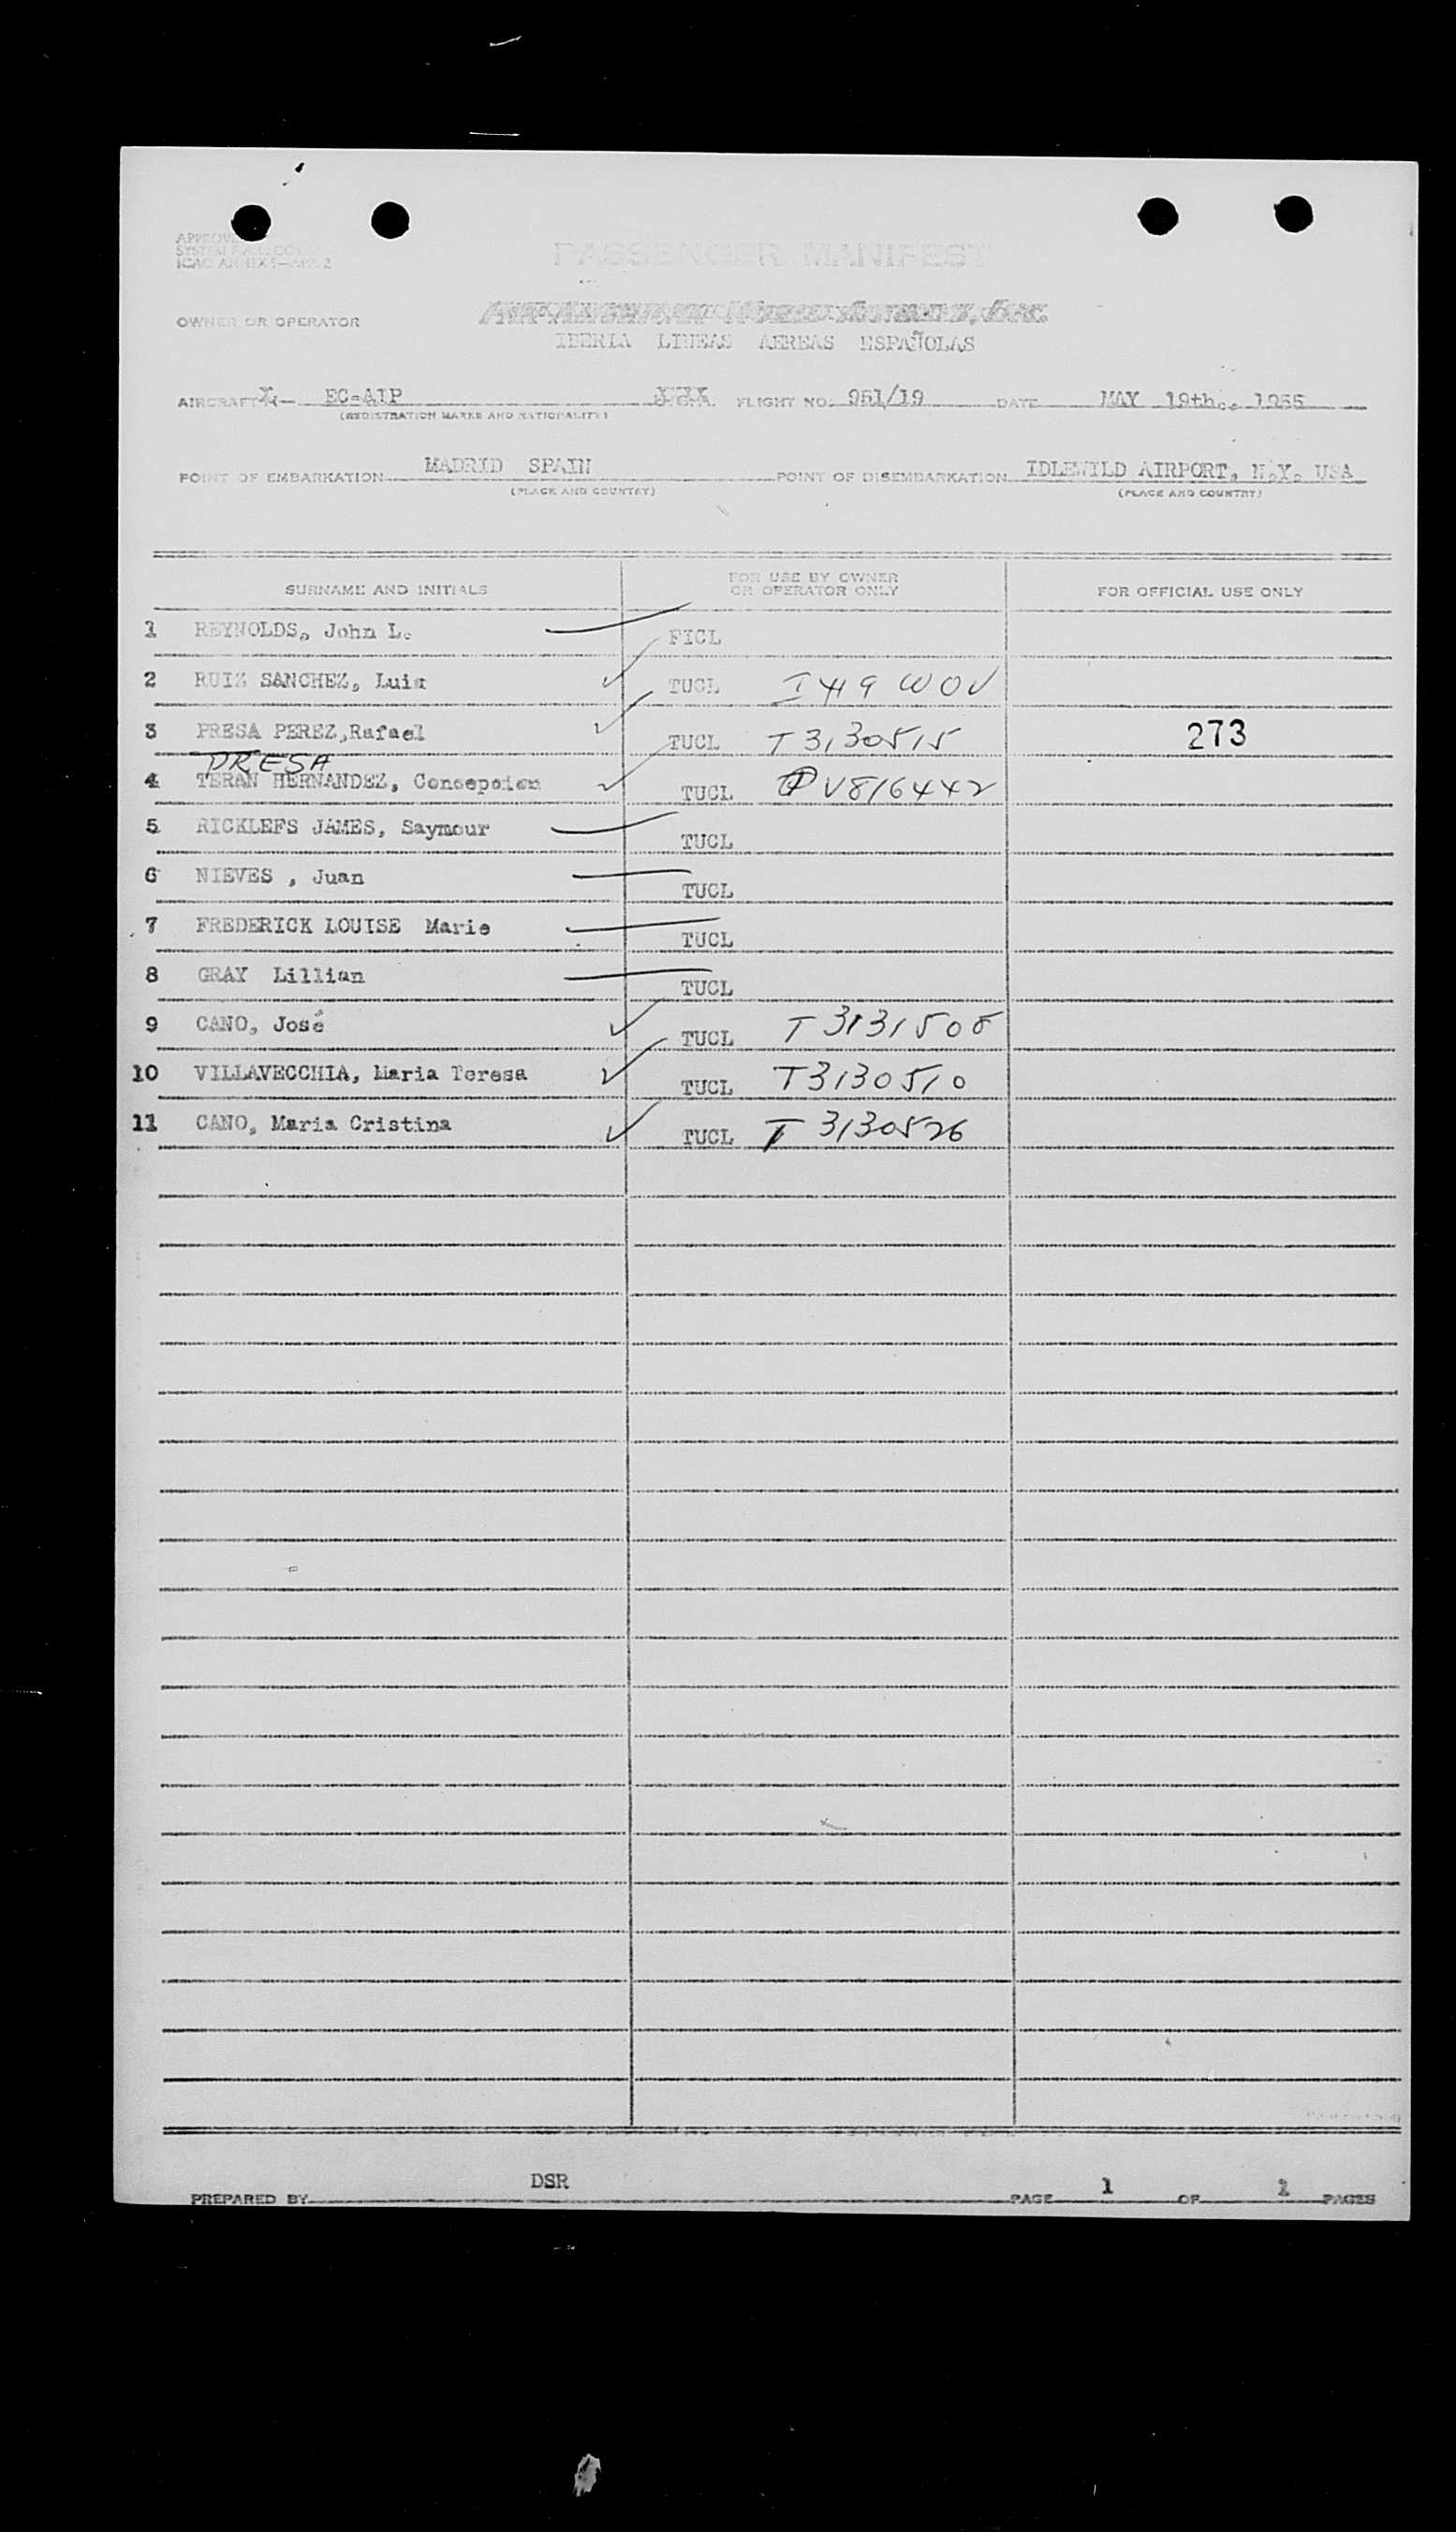 PASSENGER MANIFEST
OWNER OR OPERATOR
IBERIA LINEAS AEREAS ESPAÑOLAS
AIRCRAFT EC-AIP FLIGHT NO. 951/19 DATE MAY 19th., 1955
(REGISTRATION MARKS AND NATIONALITY)
POINT OF EMBARKATION MADRID SPAIN POINT OF DISEMBARKATION IDLEWILD AIRPORT, N.Y. USA
(PLACE AND COUNTRY) (PLACE AND COUNTRY)
SURNAME AND INITIALS FOR USE BY OWNER OR OPERATOR ONLY FOR OFFICIAL USE ONLY
1 REYNOLDS, John L. FICL
2 RUIZ SANCHEZ, Luis TUCL I 419 WOV
3 PRESA PEREZ,Rafael TUCL T 3130515 273
PRESA
4 TERAN HERNANDEZ, Concepcion TUCL V816442
5 RICKLEFS JAMES, Saymour TUCL
6 NIEVES , Juan TUCL
7 FREDERICK LOUISE Marie TUCL
8 GRAY Lillian TUCL
9 CANO, José TUCL T 3131508
10 VILLAVECCHIA, Maria Teresa TUCL T3130510
11 CANO, Maria Cristina TUCL T 3130526
PREPARED BY DSR PAGE 1 OF 1 PAGES